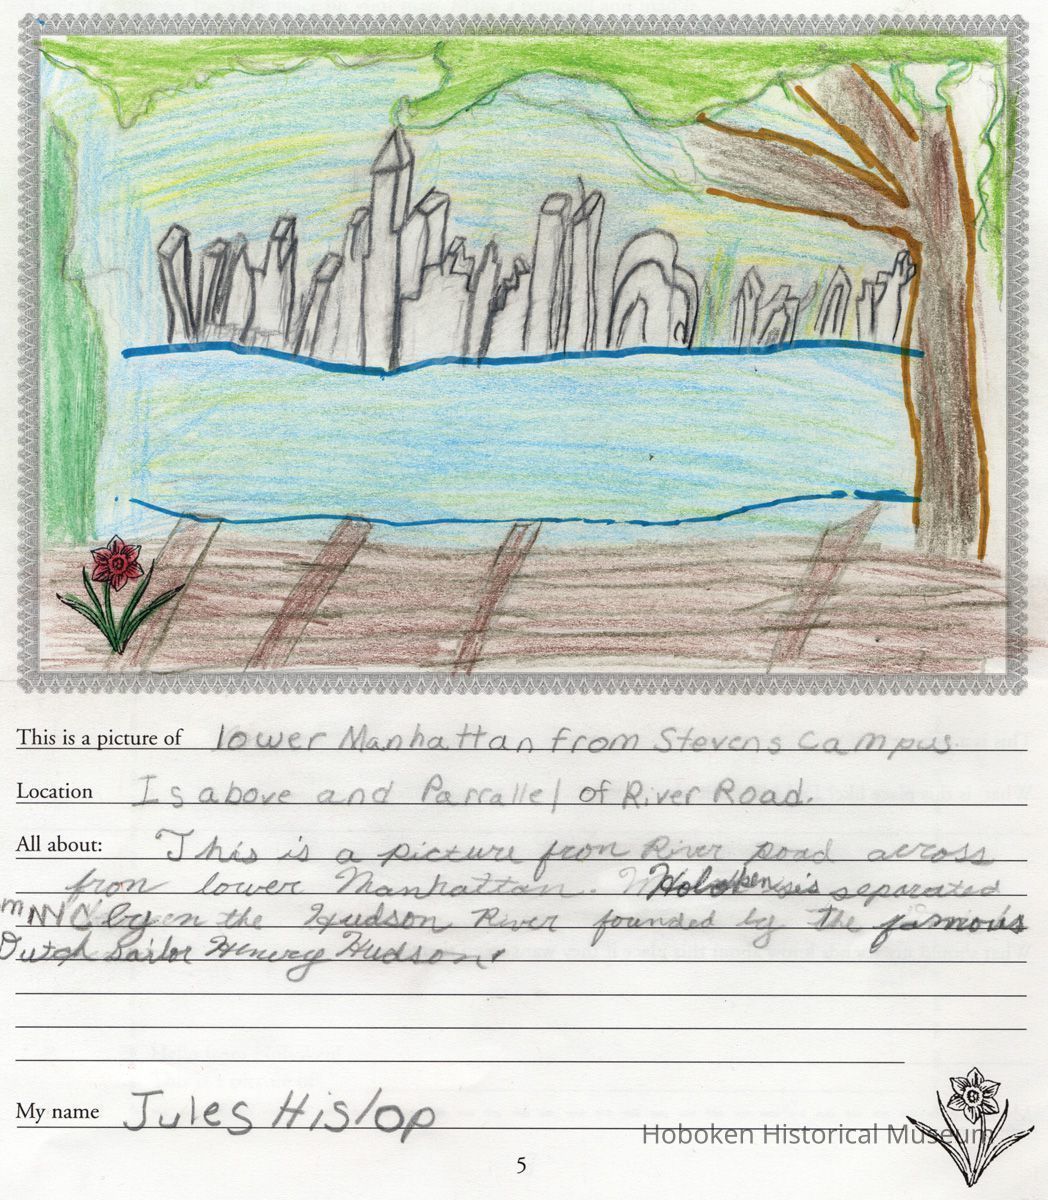 This is a picture of lower Manhattan from Stevens Campus
Location Is above and Parrallel of River Road.
All about: This is a picture fron River road across
fron lower Manhattan. Hoboken is separated
NYC by the Hudson River founded by the famous
Dutch Sailor Henery Hudson.
My name Jules Hislop
Hoboken Historical Museum
5